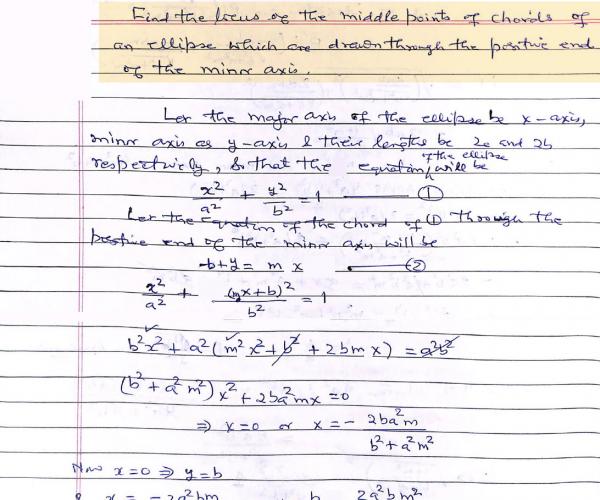 Find the locus of the middle points of chords of
an ellipse which are drawn through the positive end
of the minor axis.
Let the major axis of the ellipse be x-axis,
minor axis as y-axis & their lengths be 2a and 2b
respectively, so that the equation of the ellipse will be
x²/a² + y²/b² = 1 ——— ①
Let the equation of the chord of ① through the
positive end of the minor axis will be
-b+y = m x ——— ②
x²/a² + (mx+b)²/b² = 1
b²x² + a²(m²x² + b² + 2bmx) = a²b²
(b² + a²m²)x² + 2ba²mx = 0
⇒ x=0 or x = - 2ba²m/(b²+a²m²)
Now x=0 ⇒ y=b
x = -2a²bm b 2a²bm²